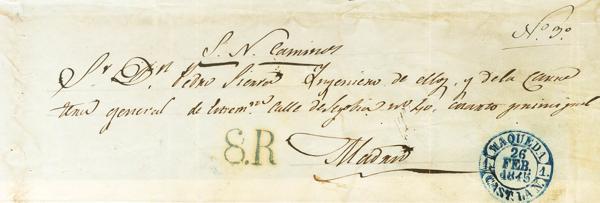 Nº 3º
S. N. Caminos
Sr. Dn. Pedro Sierra Ingeniero de ellos, y de la Carre
tera general de Estremra. Calle de Segobia nº 40, cuarto principal
Madrid
8.R
MAQUEDA
26
FEB.
1845
CAST. LA N.
1 1